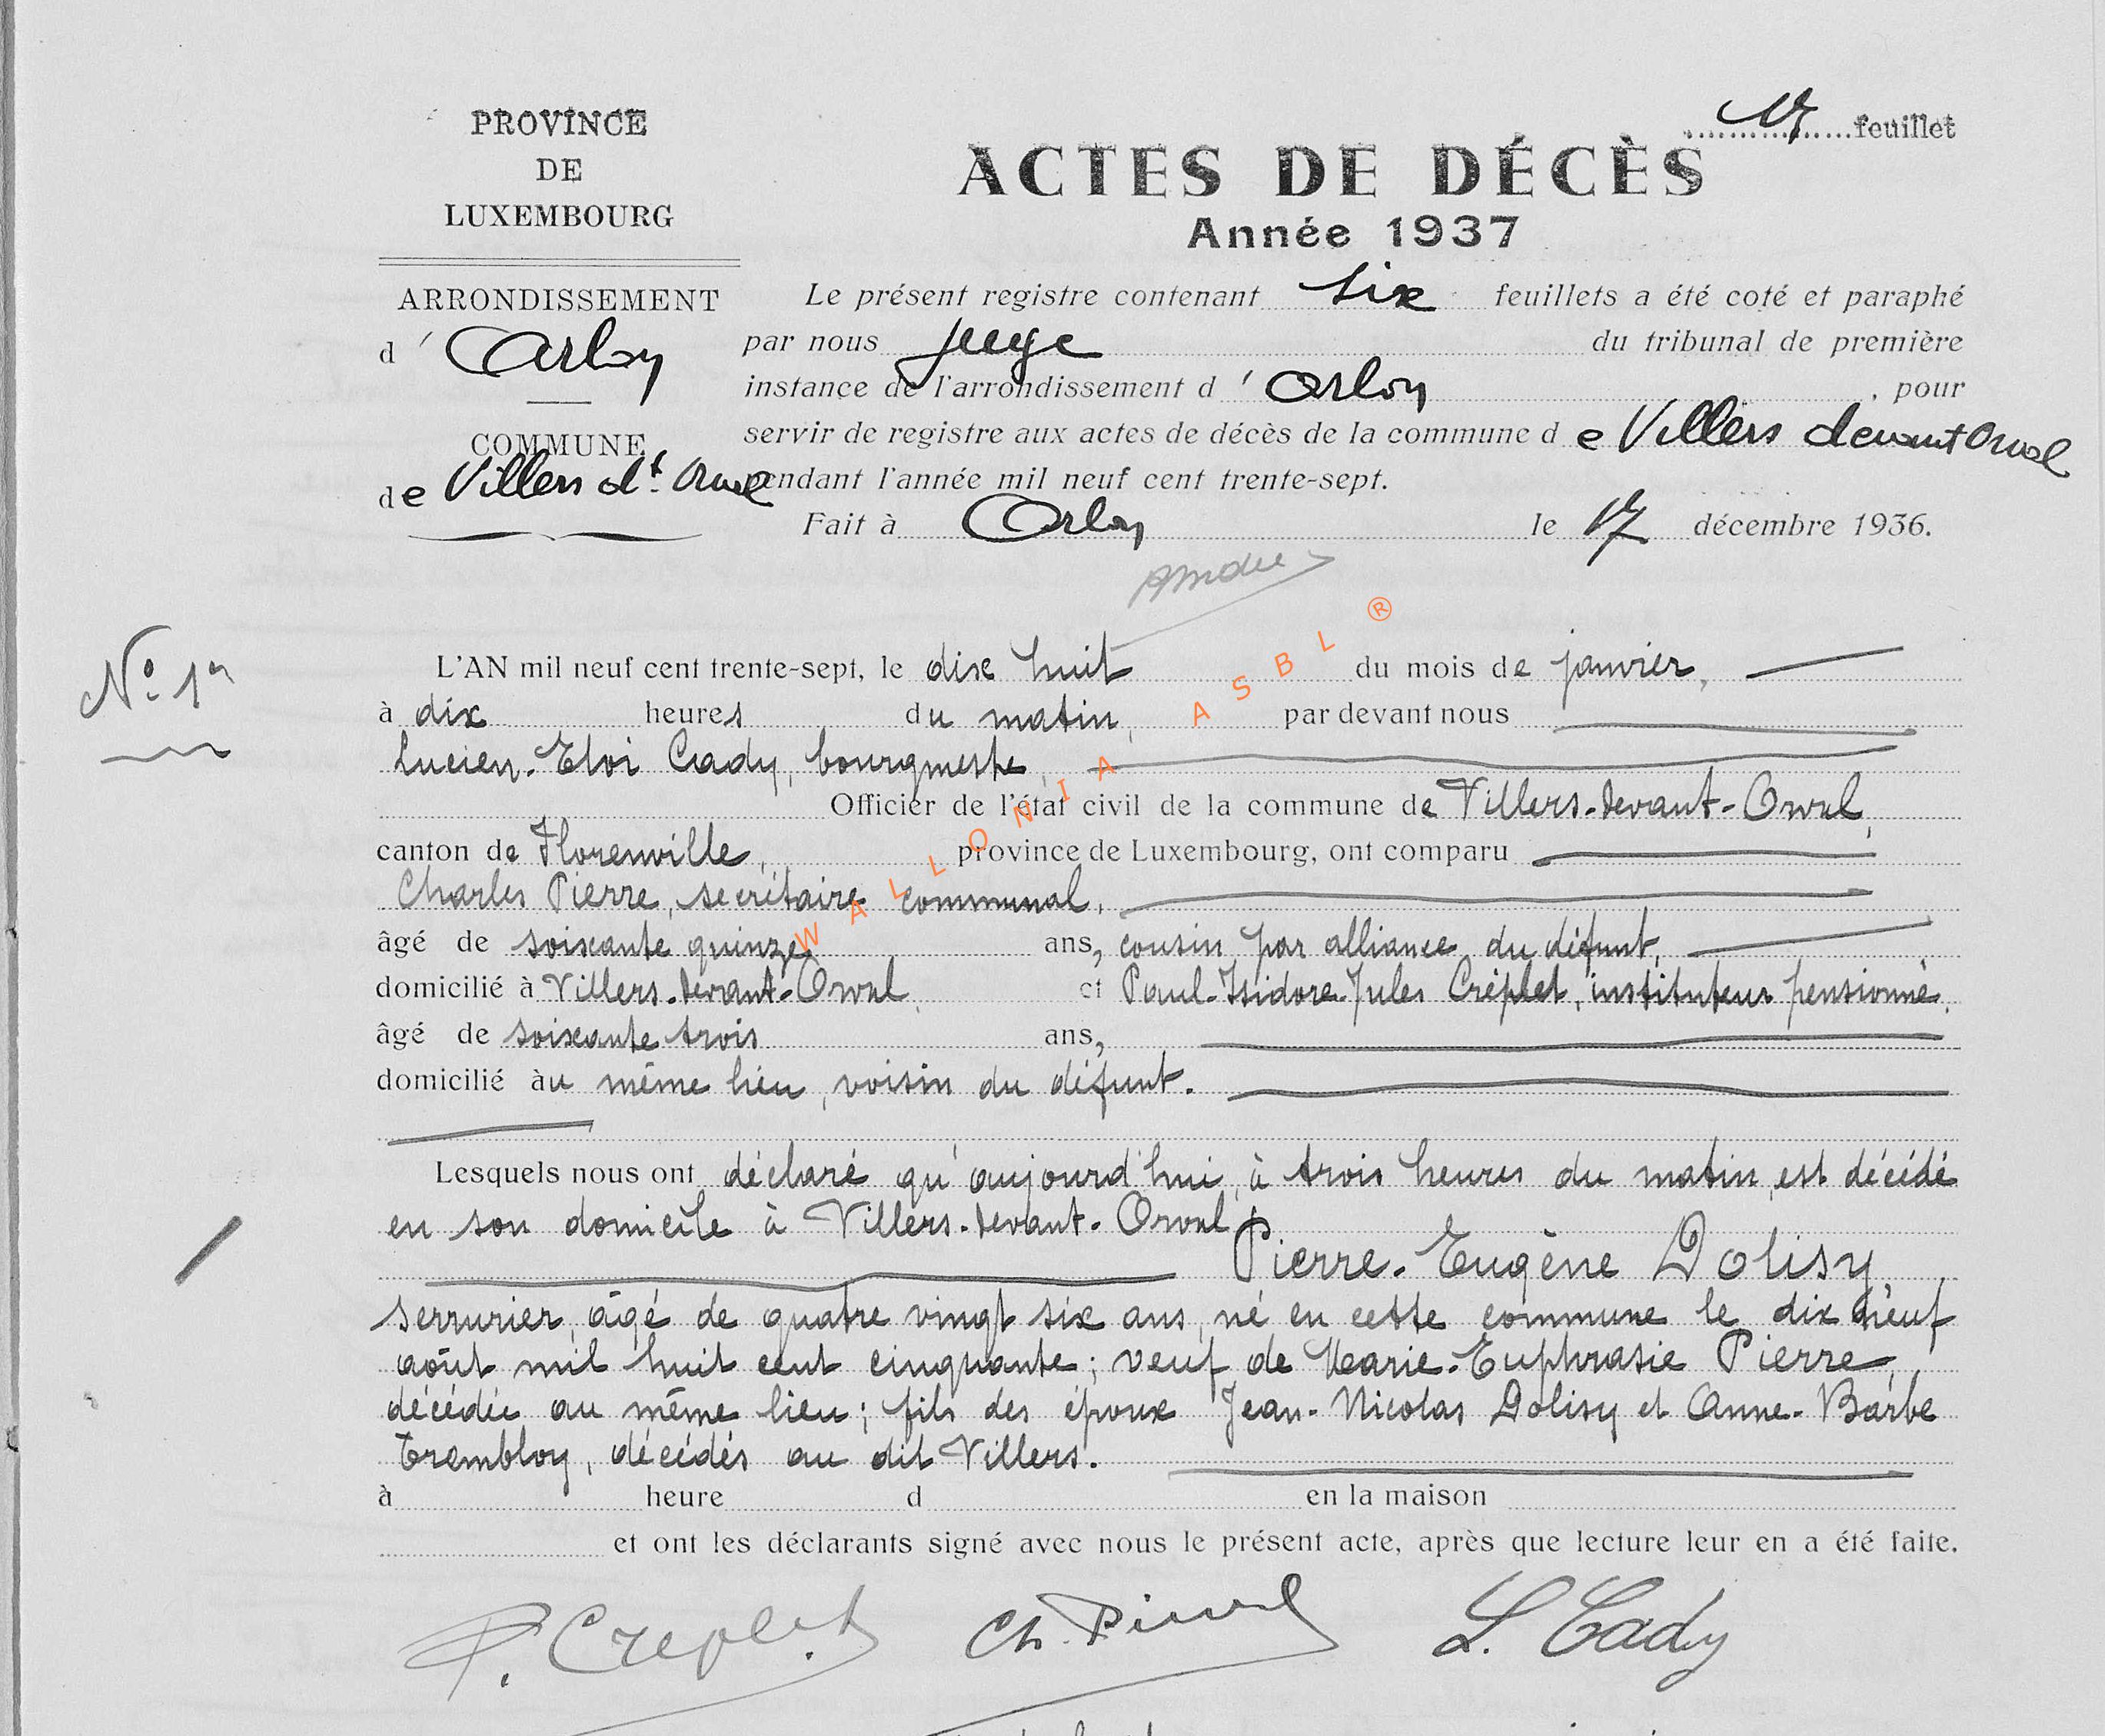 PROVINCE
DE
LUXEMBOURG
ARRONDISSEMENT
d' Arlon
COMMUNE
de Villers dt Orval
feuillet
ACTES DE DÉCÈS
Année 1937
Le présent registre contenant six feuillets a été coté et paraphé
par nous juge du tribunal de première
instance de l'arrondissement d'Arlon, pour
servir de registre aux actes de décès de la commune de Villers devant Orval
pendant l'année mil neuf cent trente-sept.
Fait à Arlon le 17 décembre 1936.
WALLONIA ASBL ®
No 1er
L'AN mil neuf cent trente-sept, le dix huit du mois de janvier,
à dix heures du matin, par devant nous
Lucien-Eloi Cady, bourgmestre,
Officier de l'état civil de la commune de Villers-devant-Orval,
canton de Florenville, province de Luxembourg, ont comparu
Charles Pierre, secrétaire communal,
âgé de soixante quinze ans, cousin par alliance du défunt,
domicilié à Villers-devant-Orval, et Paul-Isidore-Jules Créplet, instituteur pensionné,
âgé de soixante trois ans,
domicilié au même lieu, voisin du défunt.
Lesquels nous ont déclaré qu'aujourd'hui, à trois heures du matin, est décédé
en son domicile à Villers-devant-Orval,
Pierre-Eugène Dolisy,
serrurier, âgé de quatre vingt six ans, né en cette commune le dix neuf
août mil huit cent cinquante; veuf de Marie-Euphrasie Pierre,
décédée au même lieu; fils des époux Jean-Nicolas Dolisy et Anne-Barbe
Trembloy, décédés au dit Villers.
à heure d en la maison
et ont les déclarants signé avec nous le présent acte, après que lecture leur en a été faite.
P. Creplet Ch. Pierre L. Cady